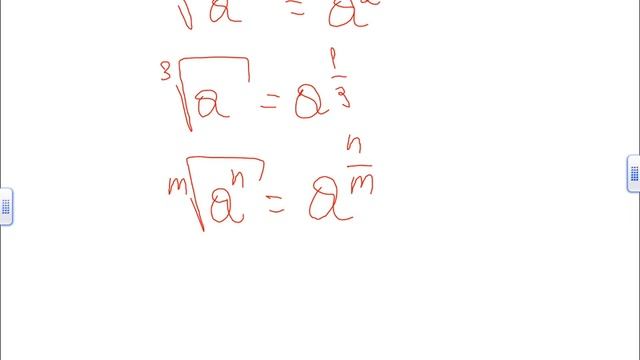 √a = a^2
∛a = a^{1/3}
ᵐ√(aⁿ) = a^{n/m}